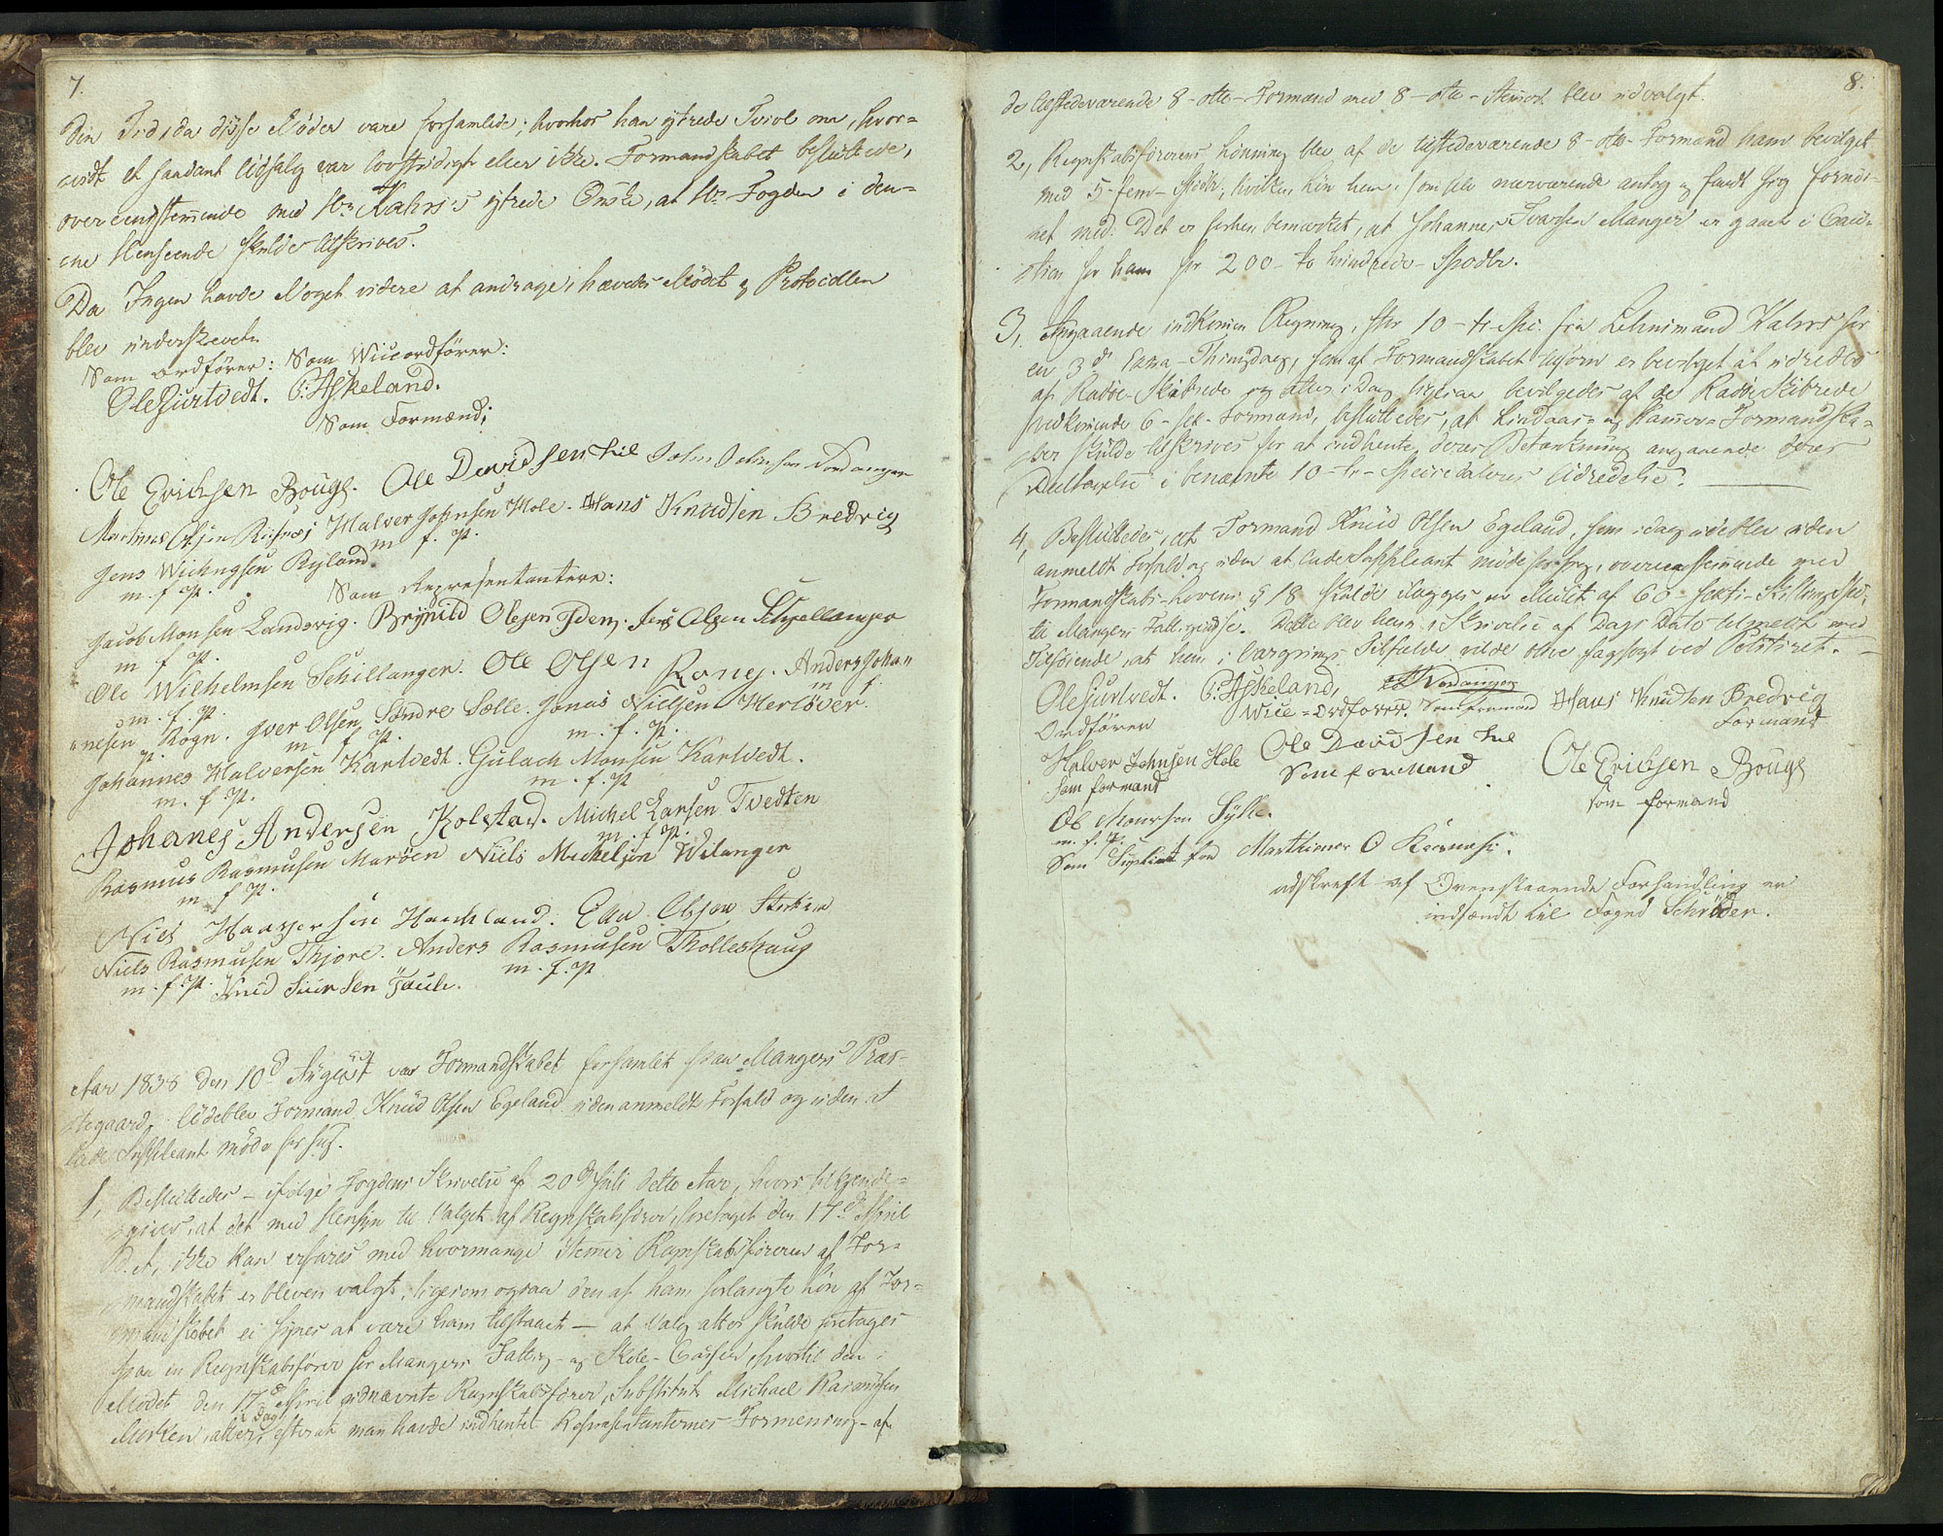 7.
den Tid, da disse Møder vare forsamlede; hvorhos han yttrede Tvivl om, hvor-
vidt et saadant Udsalg var lovstridigt eller ikke. Formandskabet besluttede,
overeensstemmende med Hr. Kahrs's yttrede Ønske, at Hr. Fogden i den-
ne Henseende skulde tilskrives.
Da Ingen havde Noget videre at andrage, hævedes Mødet og Protocollen
blev underskreven.
Som Ordfører: Som Viceordfører:
Ole Sjurtvedt. P: Askeland.
Som Formænd:
Ole Erichsen Bouge. Ole Davidsen
Martinus Olsen Halver Johnsen Hole. Hans Knudsen Bredvig
m. f. P.
Jens Wichingsen Ryland
m. f. P.
Som Repræsentantere:
Jacob Monsen Landsvig. Brynild Olsen Idem. Jens Olsen Schjellanger
m f P.
Ole Wilhelmsen Schillanger. Ole Olsen Rong. Anders Joha"
m. f. P. m f.
"nesen Rogn. Iver Olsen Søndre Sælle. Jonas Nielsen Herløver.
P. m f P. m. f. P.
Johannes Halversen Kartvedt. Gulach Monsen Kartvedt.
m. f. P. m. f. P
Johanes Andersen Kolstad. Michel Larsen Tvedten
m. f. P.
Rasmus Rasmusen Marøen Niels Mickelsen Wilanger
m f P.
Niels Haagensen Haukland. Olsen
Niels Rasmusen Thjore. Anders Rasmusen Tholleshaug
m. f. P. m. f. P
Knud
Aar 1838 den 10d August var Formandskabet forsamlet paa Mangers Præs-
tegaard. Udeblev Formand Knud Olsen Egeland uden anmeldt Forfald og uden at
lade Suppleant møde for sig.
1, Besluttedes – ifølge Fogdens Skrivelse af 20d Juli dette Aar, hvori tilkjende-
gives, at det med Hensyn til Valget af Regnskabsfører, foretaget den 17d April
d. A., ikke kan erfares med hvormange Stemmer Regnskabsføreren af For-
mandskabet er bleven valgt, ligesom ogsaa den af ham forlangte Løn af For-
mandskabet ei synes at være ham tilstaaet — at Valg atter skulde foretages
paa en Regnskabsfører for Mangers Fattig- og Skole-Casser, hvortil den i
Mødet den 17d April udnævnte Regnskabsfører, Substitut Michael Rasmussen
i Dag
Mirken, atter, efterat man havde indhentet Repræsentanternes Formening – af
8.
de tilstedeværende 8 – otte – Formænd med 8 – otte – Stemmer blev udvalgt.
2, Regnskabsførerens Lønning blev af de tilstedeværende 8 – otte – Formænd ham bevilget
med 5 – fem – Spdlr, hvilken Løn han, som selv nærværende antog og fandt sig fornøi-
et med. Det er forhen bemærket, at Johannes Ivarsen Manger er gaaet i Cau-
tion for ham for 200 – to hundrede – Spdlr.
3, Angaaende indkommen Regning, stor 10 – ti – Spd. fra Lehnsmand Kahrs for
en 3d Extra – Thingdag, som af Formandskabet tilforn er bevilget at udredes
af Radøe-Skibrede og atter i Dag ligesaa bevilgedes af de Radøe Skibrede
vedkommende 6 – sex – Formænd, besluttedes, at Lindaas- og Hammers-Formandska-
ber skulde tilskrives for at indhente deres Betænkning angaaende deres
Deeltagelse i benævnte 10 – ti – Speciedalers Udredelse.
4, Besluttedes, at Formand Knud Olsen Egeland, som i Dag udeblev uden
anmeldt Forfald og uden at lade Suppleant møde for sig, overeensstemmende med
Formandskabs-Lovens § 18 skulde ilægges en Mulct af 60 – sexti – Skilling Spec.
til Mangers Fattigcasse. Dette blev ham i Skrivelse af Dags Dato tilmeldt med
Tilføiende, at han i Vægrings Tilfælde vilde blive sagsøgt ved Politiret. —
Ole Sjurtvedt. P: Askeland,
Ordfører Vice-Ordfører. Som Formand
Hans Knudsen Bredvig
Formand
Halver Johnsen Hole Ole Davidsen
som formand Som formand
Ole Erichsen Bouge
som formand
Ole Monsen Sylte.
m. f. P.
Som Supleant for Marthinus O
udskreft af Ovenstaaende Forhandling er
indsendt til Foged Schrøder.